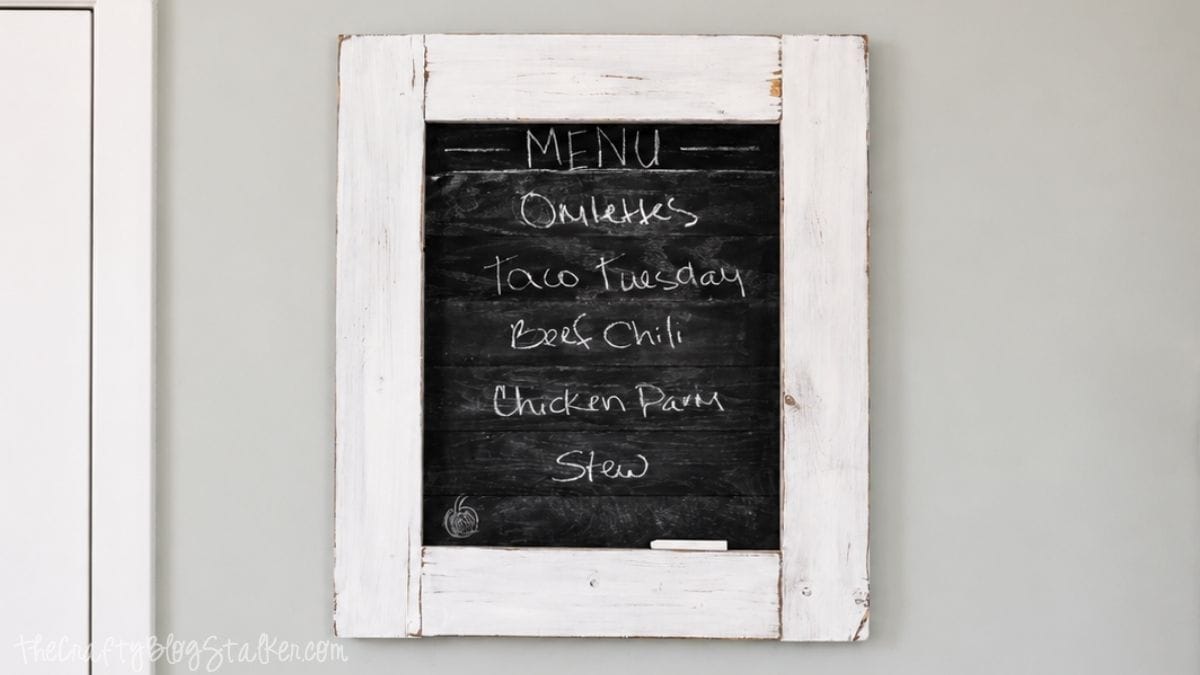 MENU
Omlettes
Taco Tuesday
Beef Chili
Chicken Parm
Stew
TheCraftyBlogStalker.com